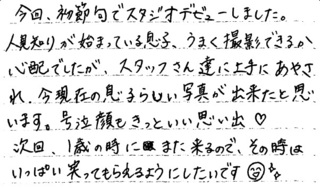 今回、初節句でスタジオデビューしました。
人見知りが始まっている息子、うまく撮影できるか
心配でしたが、スタッフさん達に上手にあやさ
れ、今現在の息子らしい写真が出来たと思い
います。号泣顔もきっといい思い出♡
次回、1歳の時にまた来るので、その時は
いっぱい笑ってもらえるようにしたいです